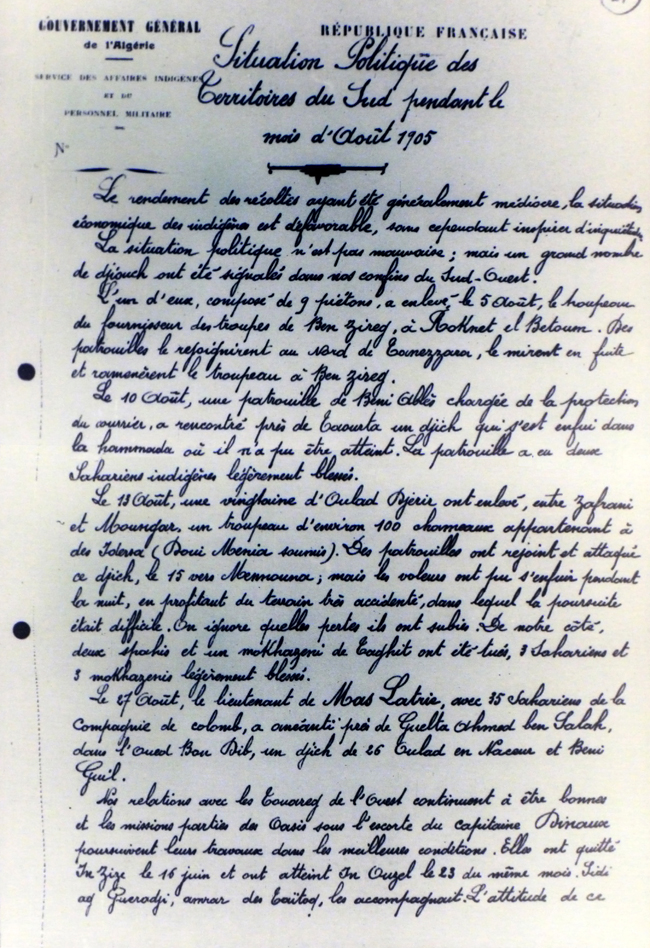 GOUVERNEMENT GÉNÉRAL
de l'Algérie
SERVICE DES AFFAIRES INDIGÈNES
ET DU
PERSONNEL MILITAIRE
N°
RÉPUBLIQUE FRANÇAISE
Situation Politique des
Territoires du Sud pendant le
mois d'Août 1905
Le rendement des récoltes ayant été généralement médiocre, la situation
économique des indigènes est défavorable, sans cependant inspirer d'inquiétudes
La situation politique n'est pas mauvaise ; mais un grand nombre
de djouch ont été signalés dans nos confins du Sud-Ouest.
L'un d'eux, composé de 9 piétons, a enlevé le 5 Août, le troupeau
du fournisseur des troupes de Ben Zireg, à Roknet el Betoum. Des
patrouilles le rejoignirent au Nord de Tanezzara, le mirent en fuite
et ramenèrent le troupeau à Ben Zireg.
Le 10 Août, une patrouille de Beni Abbès chargée de la protection
du courrier, a rencontré près de Taourta un djich qui s'est enfui dans
la hammada où il n'a pu être atteint. La patrouille a eu deux
Sahariens indigènes légèrement blessés.
Le 13 Août, une vingtaine d'Oulad Djerir ont enlevé, entre Zafrani
et Moungar, un troupeau d'environ 100 chameaux appartenant à
des Idersa (Doui Menia soumis). Des patrouilles ont rejoint et attaqué
ce djich, le 15 vers Mennouna ; mais les voleurs ont pu s'enfuir pendant
la nuit, en profitant du terrain très accidenté, dans lequel la poursuite
était difficile. On ignore quelles pertes ils ont subies. De notre côté,
deux spahis et un mokhazeni de Taghit ont été tués, 3 Sahariens et
3 mokhazenis légèrement blessés.
Le 27 Août, le lieutenant de Mas Latrie, avec 35 Sahariens de la
Compagnie de Colomb, a anéanti près de Guelta Ahmed ben Salah,
dans l'Oued Bou Dib, un djich de 26 Oulad en Naceur et Beni
Guil.
Nos relations avec les Touareg de l'Ouest continuent à être bonnes
et les missions parties des Oasis sous l'escorte du capitaine Dinaux
poursuivent leurs travaux dans les meilleures conditions. Elles ont quitté
In Zize le 16 juin et ont atteint In Ouzel le 23 du même mois. Sidi
ag Gueradji, amrar des Taïtoq, les accompagnait. L'attitude de ce